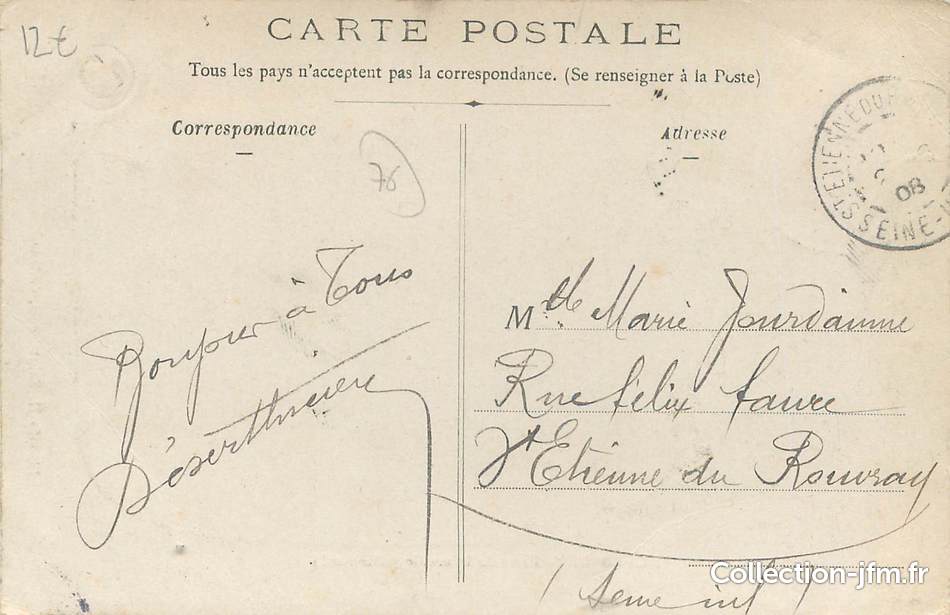 12€
CARTE POSTALE
Tous les pays n'acceptent pas la correspondance. (Se renseigner à la Poste)
Correspondance
Adresse
76
ST ETIENNE DU
08
SEINE-
Bonjour à Tous
Mlle Marie Jourdainne
Rue félix faure
St Etienne du Rouvray
(Seine inf)
Collection-jfm.fr